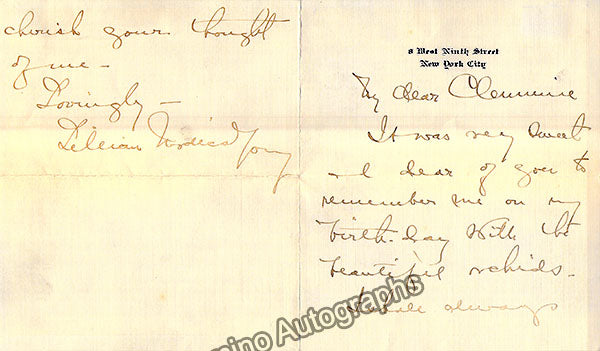 8 West Ninth Street
New York City
My dear Clemmine
It was very sweet
& dear of you to
remember me on my
birth-day with the
beautiful orchids-
I shall always
cherish your thought
of me-
Lovingly-
Lillian Nordica Young
mino Autographs